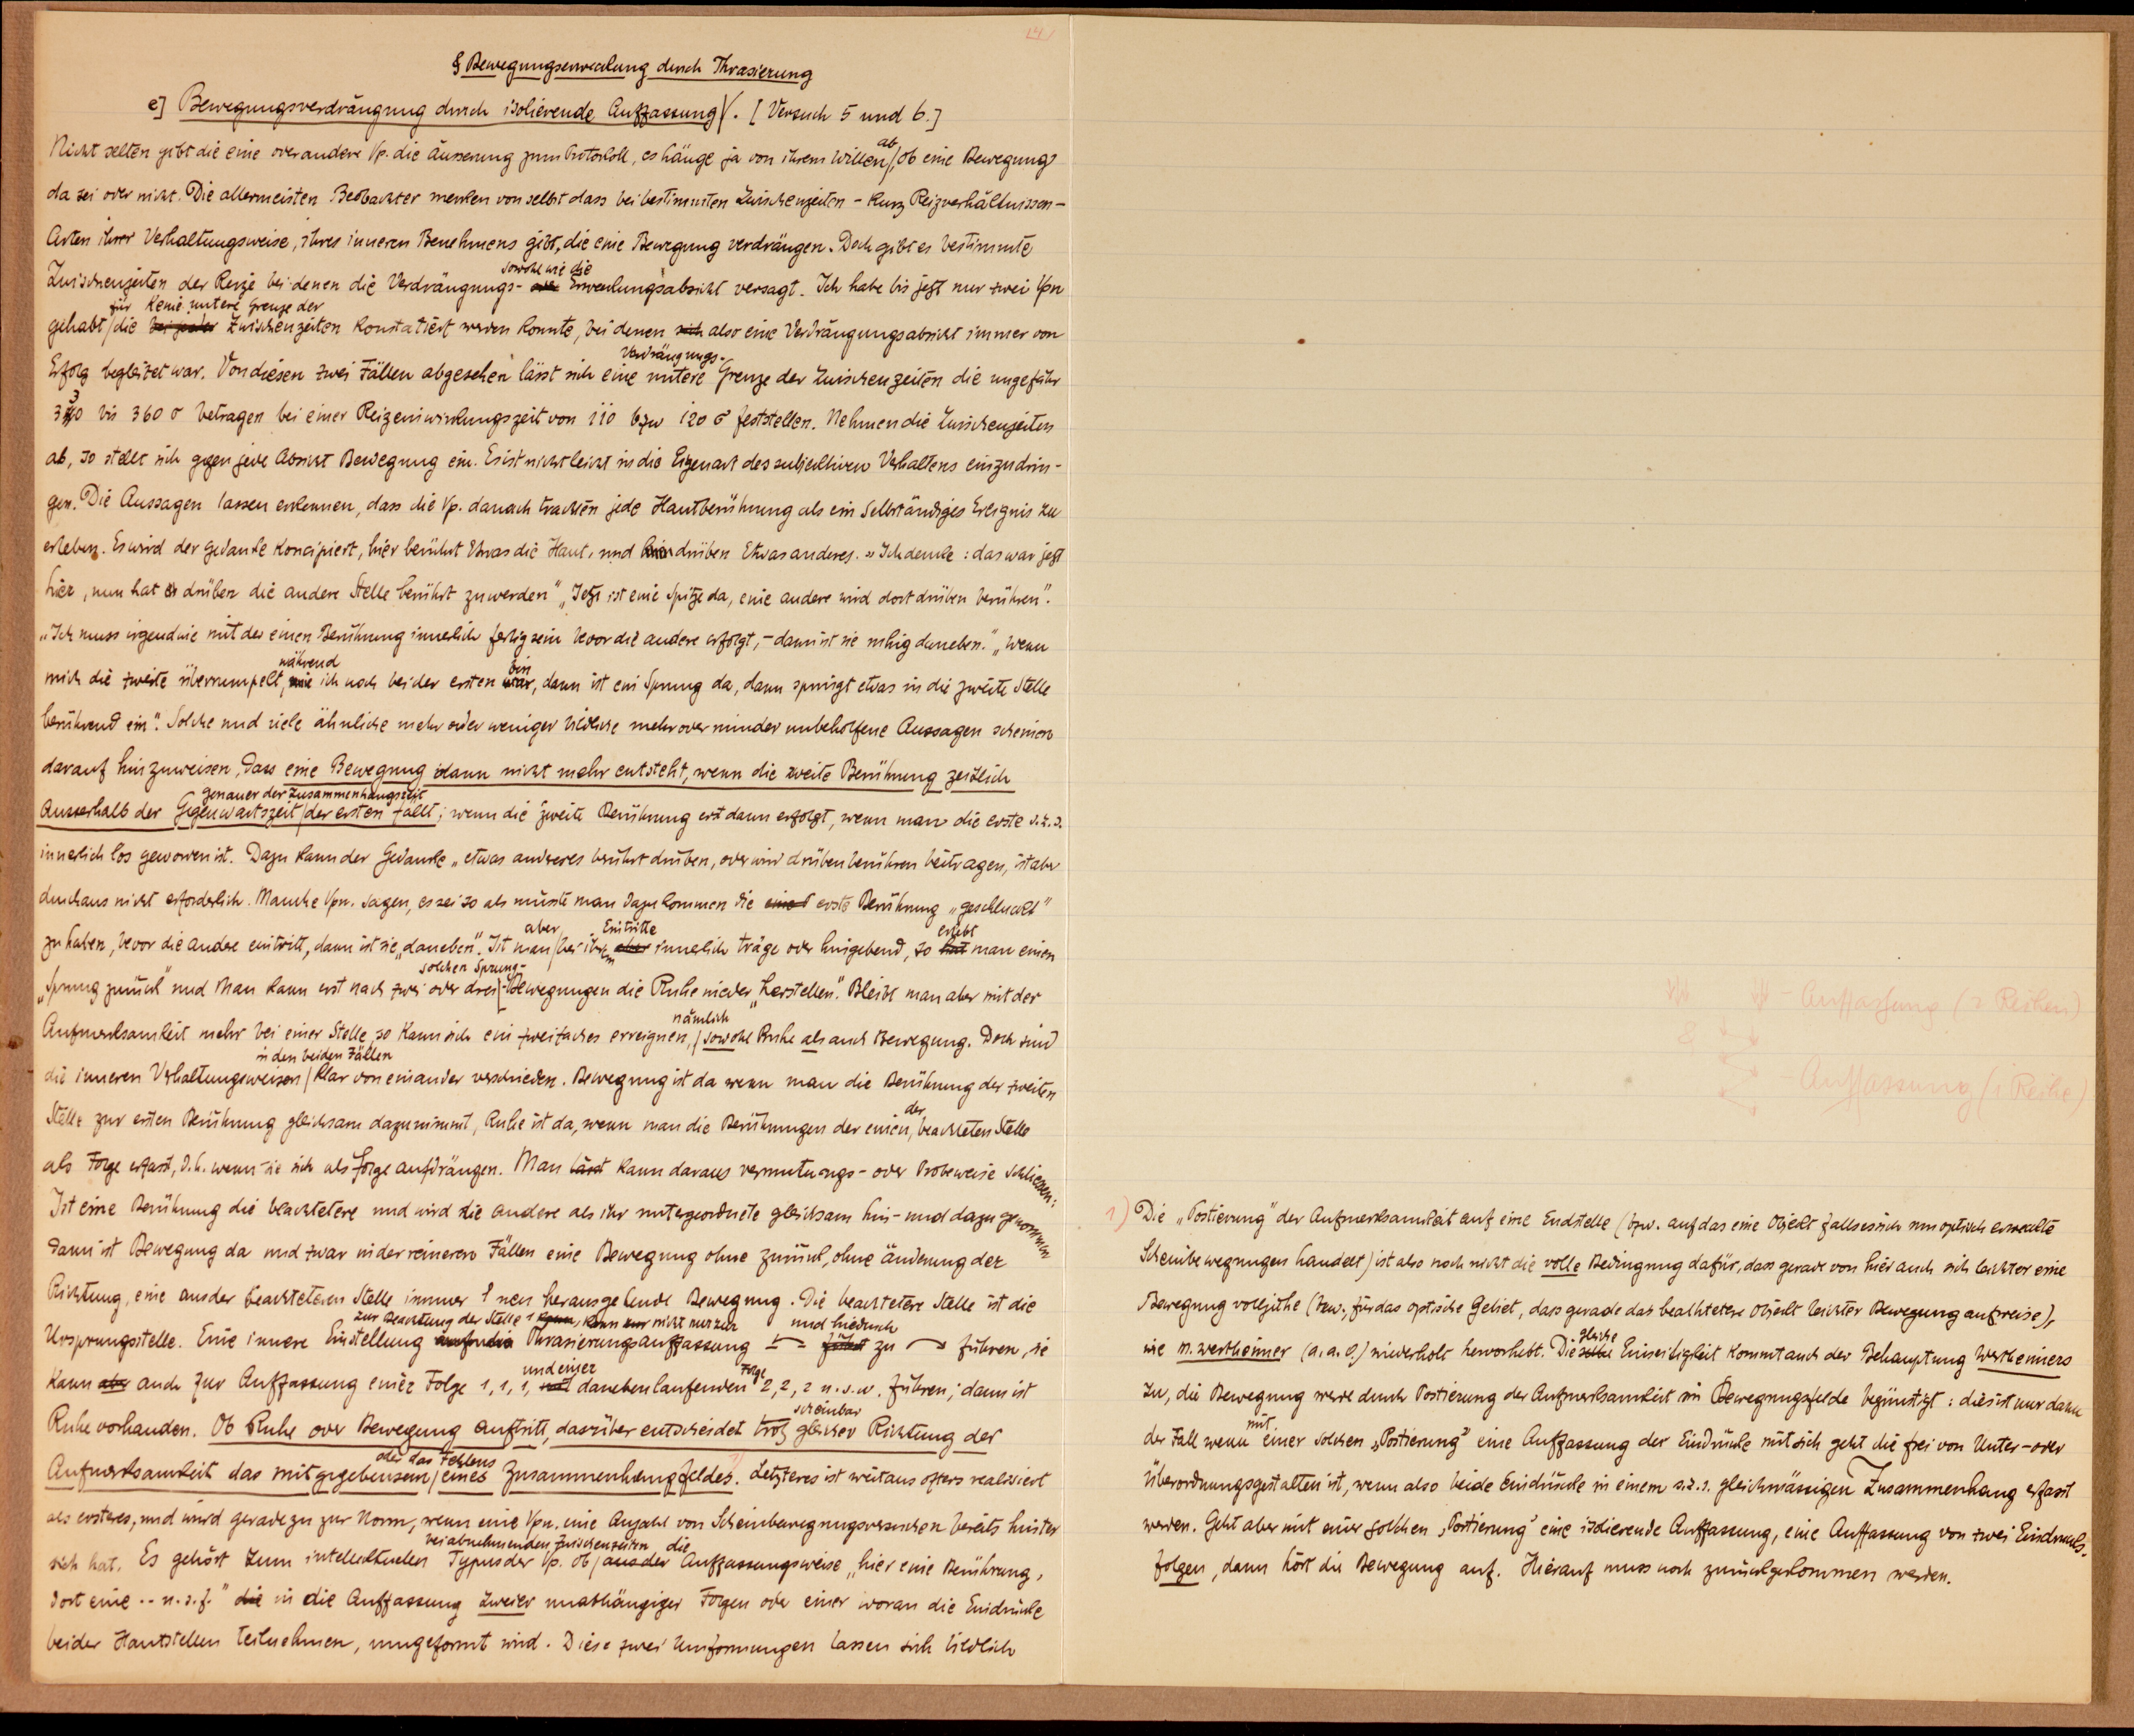 § Bewegungserweckung durch Phrasierung
e] Bewegungsverdrängung durch isolierende Auffassung. [Versuch 5 und 6.]
Nicht selten gibt die eine oder andere Vp. die Äusserung zum Protokoll, es hänge ja von ihrem Willen ab, ob eine Bewegung
da sei oder nicht. Die allermeisten Beobachter merken von selbst dass bei bestimmten Zwischenzeiten - kurz Reizverhältnissen -
Arten ihrer Verhaltungsweise, ihres inneren Benehmens gibt, die eine Bewegung verdrängen. Doch gibt es bestimmte
Zwischenzeiten der Reize bei denen die Verdrängungs- sowohl wie die Erweckungsabsicht versagt. Ich habe bis jetzt nur zwei Vpn
gehabt für die keine untere Grenze der Zwischenzeiten konstatiert werden konnte, bei denen also eine Verdrängungsabsicht immer von
Erfolg begleitet war. Von diesen zwei Fällen abgesehen lässt sich eine untere Verdrängungs-Grenze der Zwischenzeiten die ungefähr
330 bis 360 σ betragen bei einer Reizeinwirkungszeit von 110 bzw 120 σ feststellen. Nehmen die Zwischenzeiten
ab, so stellt sich gegen jede Absicht Bewegung ein. Es ist nicht leicht in die Eigenart des subjektiven Verhaltens einzudrin-
gen. Die Aussagen lassen erkennen, dass die Vp. danach trachten jede Hautberührung als ein selbständiges Ereignis zu
erleben. Es wird der Gedanke koncipiert, hier berührt Etwas die Haut, und drüben Etwas anderes. „Ich denke: das war jetzt
hier, nun hat drüben die andere Stelle berührt zu werden" „Jetzt ist eine Spitze da, eine andere wird dort drüben berühren".
„Ich muss irgendwie mit der einen Berührung innerlich fertig sein bevor die andere erfolgt, - dann ist sie ruhig daneben." „Wenn
mich die zweite überrumpelt, während ich noch bei der ersten bin, dann ist ein Sprung da, dann springt etwas in die zweite Stelle
berührend ein". Solche und viele ähnliche mehr oder weniger bildliche mehr oder minder unbeholfene Aussagen scheinen
darauf hinzuweisen, dass eine Bewegung dann nicht mehr entsteht, wenn die zweite Berührung zeitlich
ausserhalb der Gegenwartszeit genauer der Zusammenhangszeit der ersten fällt; wenn die zweite Berührung erst dann erfolgt, wenn man die erste s.z.s.
innerlich los geworden ist. Dazu kann der Gedanke „etwas anderes berührt drüben, oder wird drüben berühren beitragen, ist aber
durchaus nicht erforderlich. Manche Vpn. sagen, es sei so als müsste man dazu kommen die erste Berührung „geschluckt"
zu haben, bevor die andere eintritt, dann ist sie „daneben". Ist man aber bei ihrem Eintritte innerlich träge oder hingebend, so erlebt man einen
„Sprung zurück" und man kann erst nach zwei oder drei solchen Sprung-Bewegungen die Ruhe wieder „herstellen". Bleibt man aber mit der
Aufmerksamkeit mehr bei einer Stelle, so kann sich ein zweifaches ereignen, nämlich sowohl Ruhe als auch Bewegung. Doch sind
die inneren Verhaltungsweisen in den beiden Fällen klar von einander verschieden. Bewegung ist da wenn man die Berührung der zweiten
Stelle zur ersten Berührung gleichsam dazunimmt, Ruhe ist da, wenn man die Berührungen der einen, der beachteten Stelle
als Folge erfasst, d.h. wenn sie sich als Folge aufdrängen. Man kann daraus vermutungs- oder probeweise schliessen:
Ist eine Berührung die beachtetere und wird die andere als ihr untergeordnete gleichsam hin- und dazu genommen
dann ist Bewegung da und zwar in der reineren Fällen eine Bewegung ohne zurück, ohne änderung der
Richtung, eine aus der beachteteren Stelle immer neu herausgehende Bewegung. Die beachtetere Stelle ist die
Ursprungsstelle. Eine innere Einstellung zur Beachtung der Stelle 1 kann nicht nur zur Phrasierungsauffassung und hiedurch zu führen, sie
kann auch zur Auffassung einer Folge 1, 1, 1, und einer daneben laufenden Folge 2, 2, 2 u.s.w. führen; dann ist
Ruhe vorhanden. Ob Ruhe oder Bewegung auftritt, darüber entscheidet trotz scheinbar gleicher Richtung der
Aufmerksamkeit das mitgegebensein oder das Fehlens eines Zusammenhangfeldes. Letzteres ist weitaus öfters realisiert
als ersteres, und wird geradezu zur Norm, wenn eine Vpn. eine Anzahl von Scheinbewegungsversuchen bereits hinter
sich hat. Es gehört zum intellektuellen Typus der Vp. ob bei abnehmenden Zwischenzeiten die Auffassungsweise „hier eine Berührung,
dort eine .. u.s.f." in die Auffassung zweier unabhängiger Folgen oder einer woran die Eindrücke
beider Hautstellen teilnehmen, umgeformt wird. Diese zwei Umformungen lassen sich bildlich
- Auffassung (2 Reihen)
- Auffassung (1 Reihe)
1) Die „Postierung" der Aufmerksamkeit auf eine Endstelle (bzw. auf das eine Objekt falls es sich um optisch erweckte
Scheinbewegungen handelt) ist also noch nicht die volle Bedingung dafür, dass gerade von hier auch sich leichter eine
Bewegung vollziehe (bzw. für das optische Gebiet, dass gerade das beachtetere Objekt leichter Bewegung aufweise),
wie M. Wertheimer (a.a.O.) wiederholt hervorhebt. Die gleiche Einseitigkeit kommt auch der Behauptung Wertheimers
zu, die Bewegung werde durch Postierung der Aufmerksamkeit im Bewegungsfelde begünstigt: dies ist nur dann
der Fall wenn mit einer solchen „Postierung" eine Auffassung der Eindrücke mit sich geht die frei von Unter- oder
Überordnungsgestalten ist, wenn also beide Eindrücke in einem s.z.s. gleichmässigen Zusammenhang erfasst
werden. Geht aber mit einer solchen „Postierung" eine isolierende Auffassung, eine Auffassung von zwei Eindrucks-
folgen, dann hört die Bewegung auf. Hierauf muss noch zurückgekommen werden.